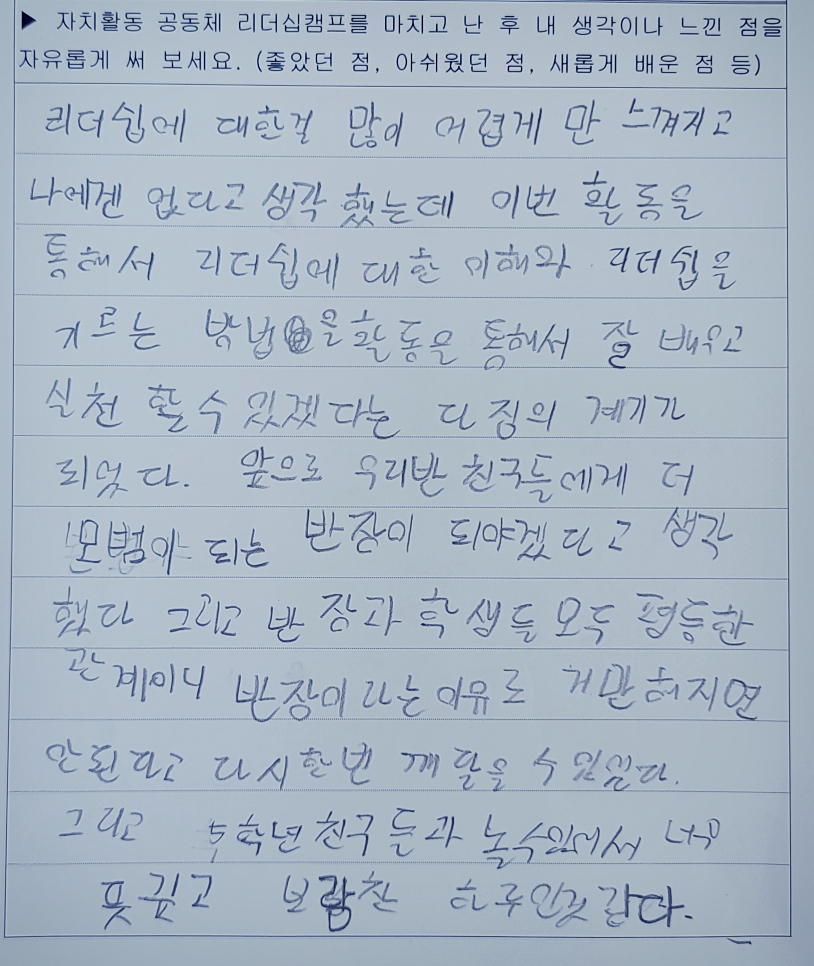 ▶ 자치활동 공동체 리더십캠프를 마치고 난 후 내 생각이나 느낀 점을
자유롭게 써 보세요. (좋았던 점, 아쉬웠던 점, 새롭게 배운 점 등)
리더쉽에 대한걸 많이 어렵게 만 느껴지고
나에겐 없다고 생각 했는데 이번 활동을
통해서 리더쉽에 대한 이해와 리더쉽을
기르는 방법을 활동을 통해서 잘 배우고
실천 할 수 있겠다는 다짐의 계기가
되었다. 앞으로 우리반 친구들에게 더
모범이 되는 반장이 되야겠다고 생각
했다 그리고 반장과 학생들 모두 평등한
관계이니 반장이라는 이유로 거만해지면
안된다고 다시한번 깨달을 수 있었다.
그리고 학년 친구들과 놀수있어서 너무
뜻깊고 보람찬 하루인것 같다.